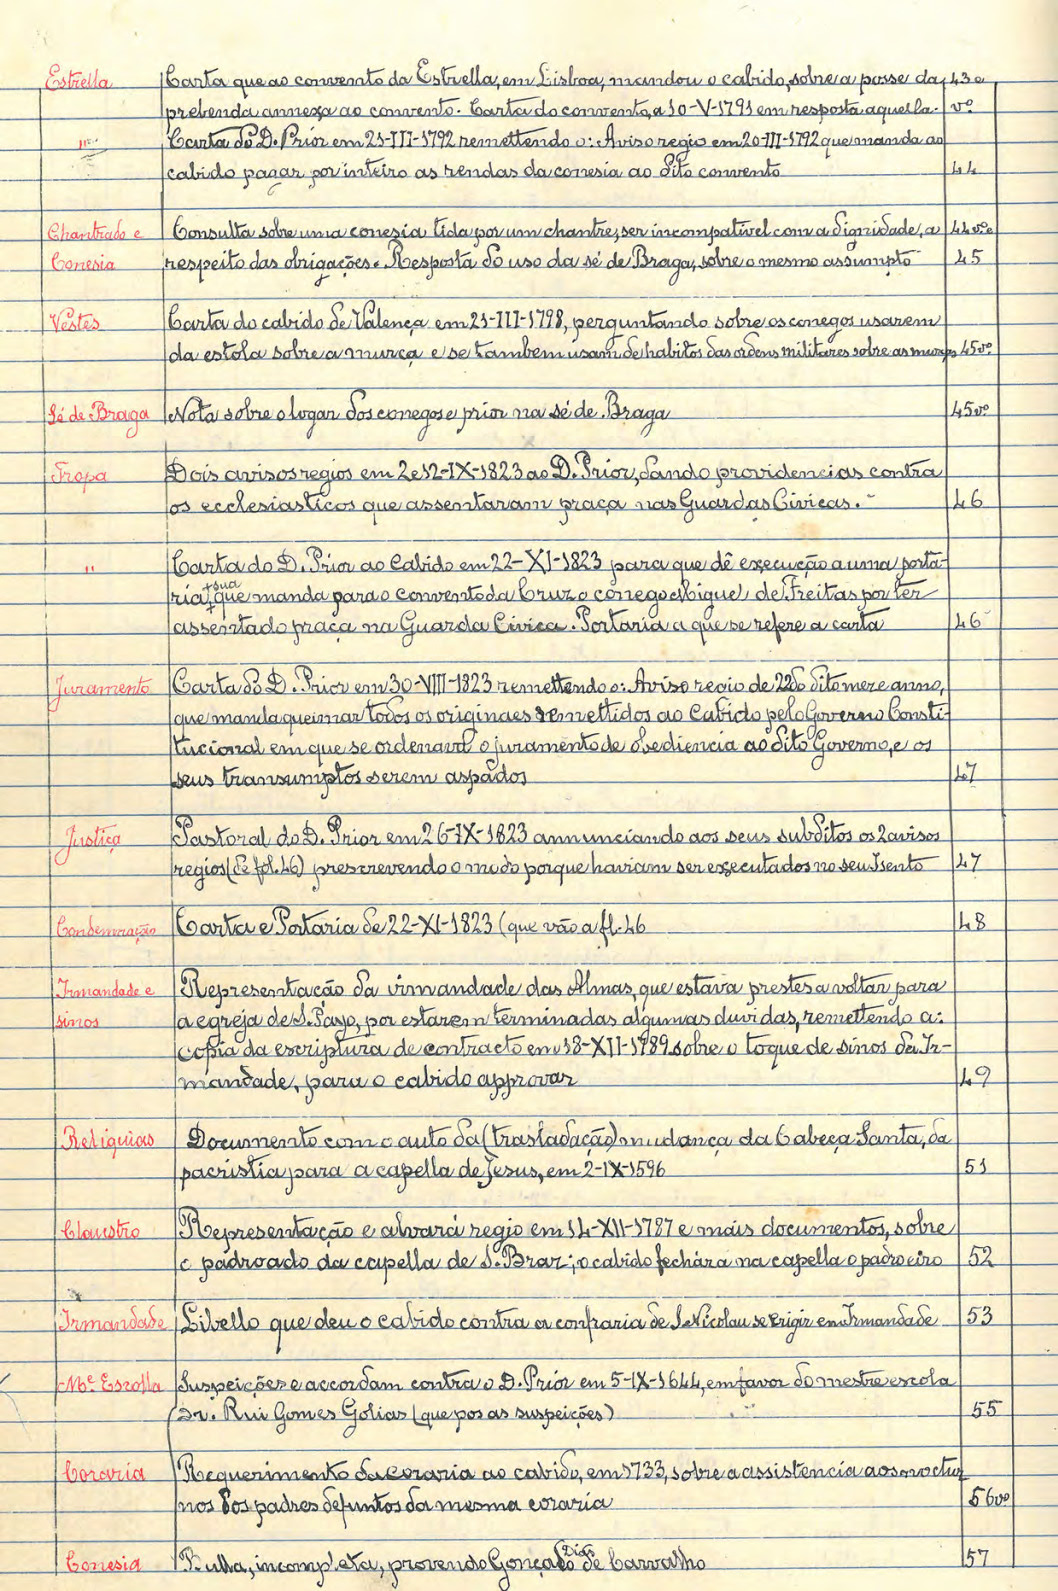 Estrella Carta que ao convento da Estrella, em Lisboa, mandou o cabido, sobre a posse da 43 e
prebenda annexa ao convento. Carta do convento, a 10-V-1791 em resposta aquella. vº
" Carta do D. Prior em 21-III-1792 remettendo o: Aviso regio em 20-III-1792 que manda ao
cabido pagar por inteiro as rendas da conesia ao dito convento 44
Chantrado e Consulta sobre uma conesia tida por um chantre, ser incompativel com a dignidade, a 44vº e
Conesia respeito das obrigações. Resposta do uso da sé de Braga, sobre o mesmo assumpto 45
Vestes Carta do cabido de Valença em 21-III-1798, perguntando sobre os conegos usarem
da estola sobre a murça e se tambem usam de habitos das ordens militares sobre as murças 45vº
Sé de Braga Nota sobre o logar dos conegos e prior na sé de Braga 45vº
Tropa Dois avisos regios em 2 e 12-IX-1823 ao D. Prior, dando providencias contra
os ecclesiasticos que assentaram praça nas Guardas Civicas. 46
" Carta do D. Prior ao Cabido em 22-XI-1823 para que dê execução a uma porta-
ria, sua que manda para o convento da Cruz o conego Miguel de Freitas por ter
assentado praça na Guarda Civica. Portaria a que se refere a carta 46
Juramento Carta do D. Prior em 30-VIII-1823 remettendo o: Aviso regio de 22 do dito mez e anno,
que manda queimar todos os originaes remettidos ao Cabido pelo Governo Consti-
tucional em que se ordenava o juramento de obediencia ao dito Governo, e os
seus transumptos serem aspados 47
Justiça Pastoral do D. Prior em 26-IX-1823 annunciando aos seus subditos os 2 avisos
regios (de fol. 46) prescrevendo o modo porque haviam ser executados no seu Isento 47
Condemnação Carta e Portaria de 22-XI-1823 (que vão a fl. 46 48
Irmandade e Representação da irmandade das Almas, que estava prestes a voltar para
sinos a egreja de S. Payo, por estarem terminadas algumas duvidas, remettendo a:
copia da escriptura de contracto em 18-XII-1789 sobre o toque de sinos da Ir-
mandade, para o cabido approvar 49
Reliquias Documento com o auto da (trasladação) mudança da Cabeça Santa, da
sacristia para a capella de Jesus, em 2-IX-1596 51
Claustro Representação e alvará regio em 14-XII-1787 e mais documentos, sobre
o padroado da capella de S. Braz; o cabido fechára na capella o padroeiro 52
Irmandade Libello que deu o cabido contra a confraria de S. Nicolau se erigir em Irmandade 53
Mᵉ Escolla Suspeições e accordam contra o D. Prior em 5-IX-1644, em favor do mestre escola
Dr. Rui Gomes Golias (que pos as suspeições) 55
Coraria Requerimento da coraria ao cabido, em 1733, sobre a assistencia aos noctur
nos dos padres defuntos da mesma coraria 56vº
Conesia Bulla, incompleta, provendo Gonçalo Dias de Carvalho 57